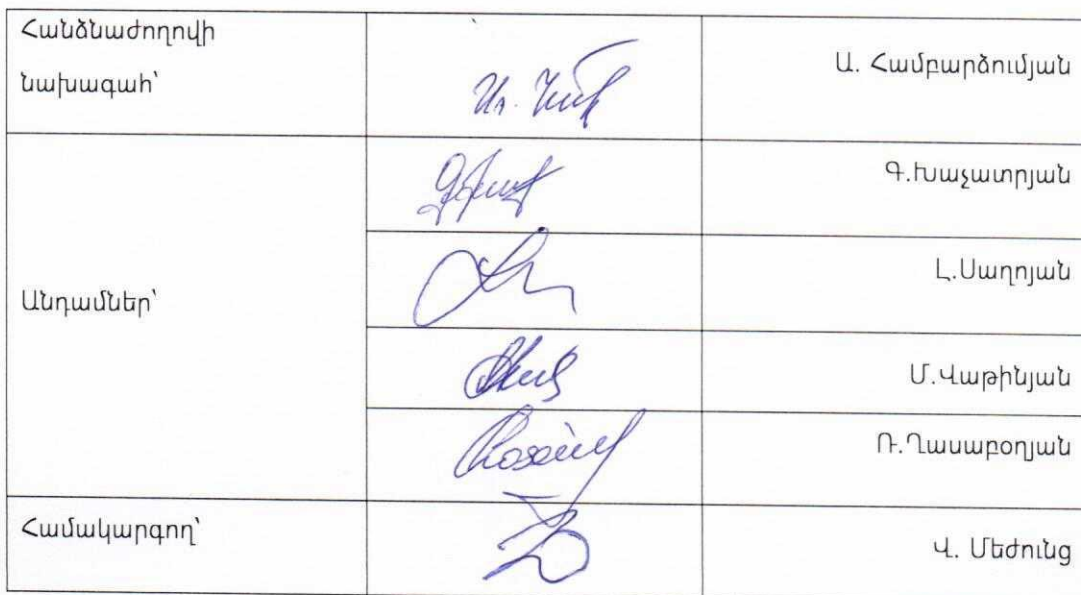 Հանձնաժողովի
նախագահ՝
Ա. Համբարձումյան
Գ.Խաչատրյան
Անդամներ՝
Լ.Սաղոյան
Մ.Վաթինյան
Ռ.Ղասաբօղյան
Համակարգող՝
Վ. Մեժունց